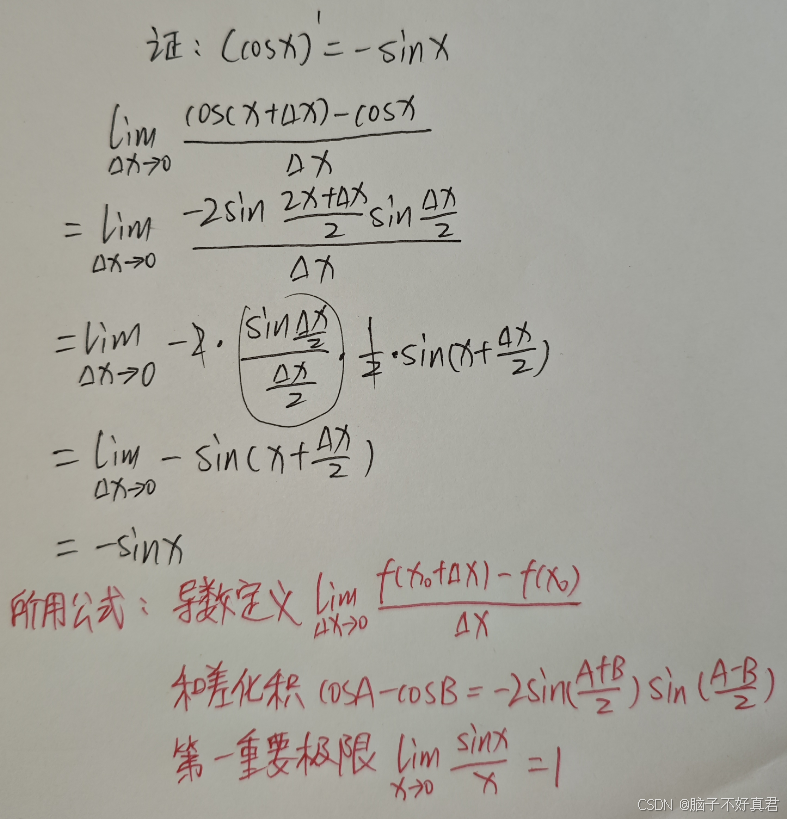 证: (cosx)' = -sinx
lim_{Δx→0} \frac{cos(x+Δx)-cosx}{Δx}
= lim_{Δx→0} \frac{-2sin\frac{2x+Δx}{2}sin\frac{Δx}{2}}{Δx}
= lim_{Δx→0} -2·\frac{sin\frac{Δx}{2}}{\frac{Δx}{2}}·\frac{1}{2}·sin(x+\frac{Δx}{2})
= lim_{Δx→0} -sin(x+\frac{Δx}{2})
= -sinx
所用公式: 导数定义 lim_{Δx→0} \frac{f(x₀+Δx)-f(x₀)}{Δx}
和差化积 cosA-cosB=-2sin(\frac{A+B}{2})sin(\frac{A-B}{2})
第一重要极限 lim_{x→0} \frac{sinx}{x}=1
CSDN @脑子不好真君